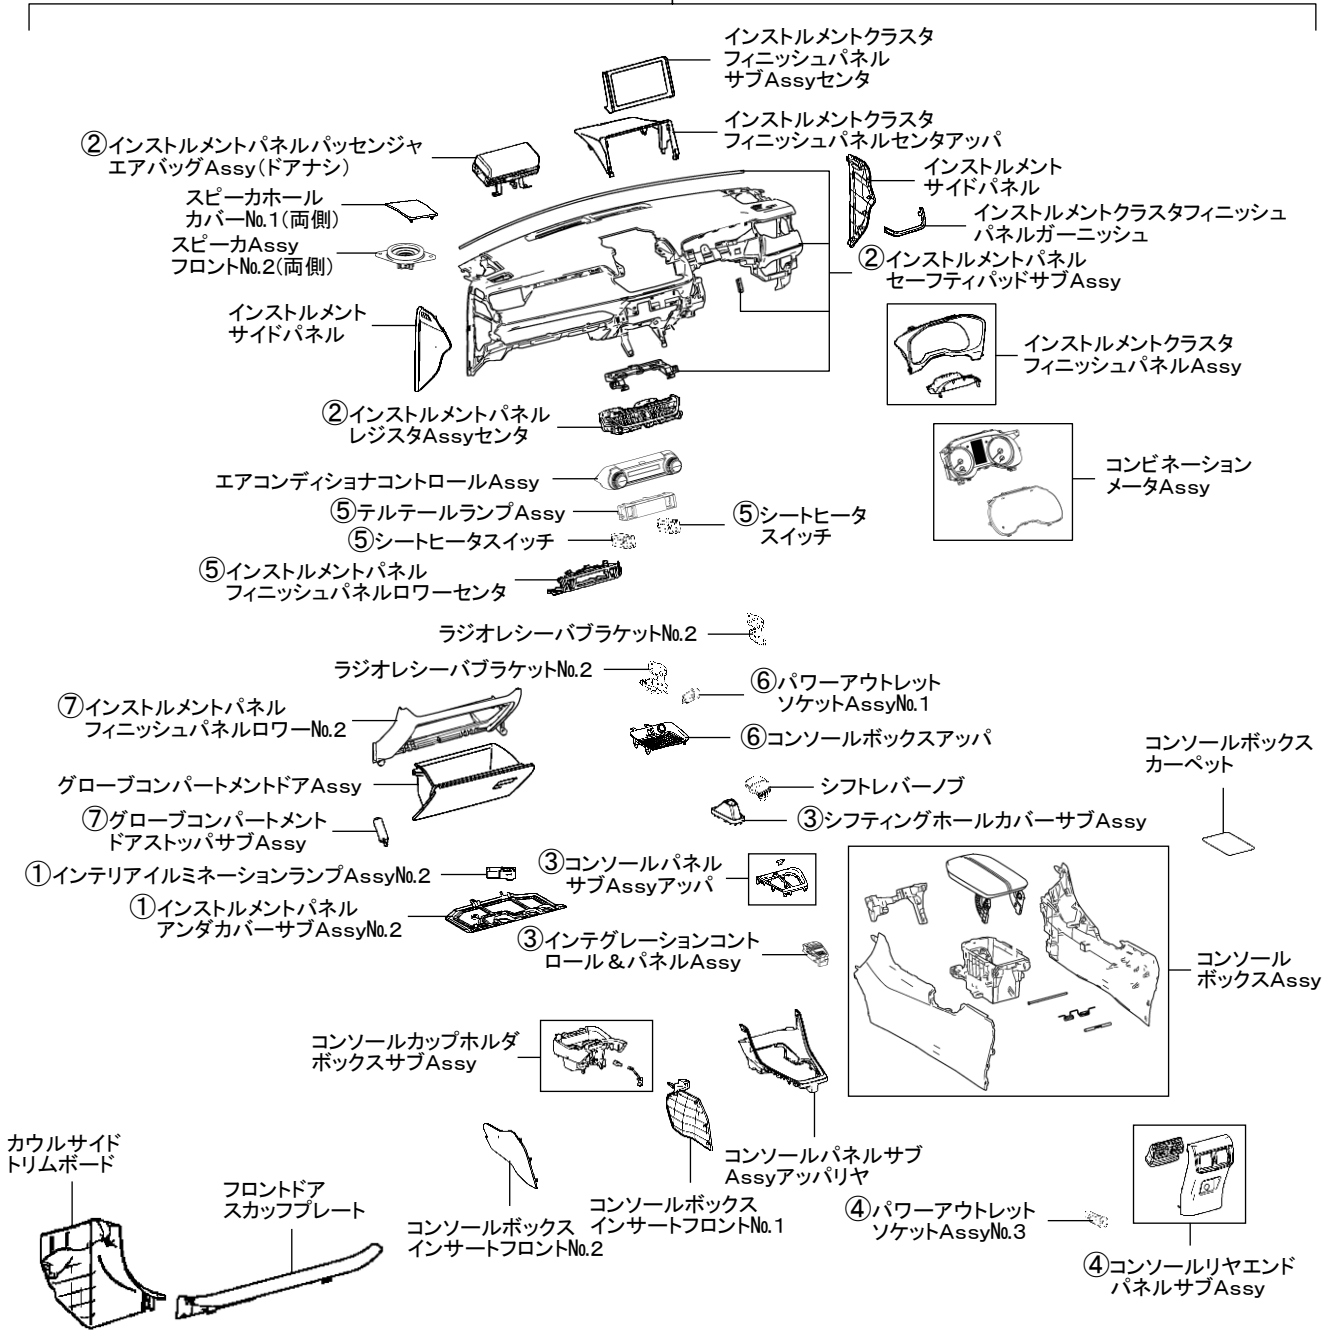 インストルメントクラスタ
フィニッシュパネル
サブAssyセンタ
インストルメントクラスタ
フィニッシュパネルセンタアッパ
②インストルメントパネルパッセンジャ
エアバッグAssy(ドアナシ)
インストルメント
サイドパネル
スピーカホール
カバー№1(両側)
インストルメントクラスタフィニッシュ
パネルガーニッシュ
スピーカAssy
フロント№2(両側)
②インストルメントパネル
セーフティパッドサブAssy
インストルメント
サイドパネル
インストルメントクラスタ
フィニッシュパネルAssy
②インストルメントパネル
レジスタAssyセンタ
コンビネーション
メータAssy
エアコンディショナコントロールAssy
⑤テルテールランプAssy
⑤シートヒータ
スイッチ
⑤シートヒータスイッチ
⑤インストルメントパネル
フィニッシュパネルロワーセンタ
ラジオレシーバブラケット№2
ラジオレシーバブラケット№2
⑥パワーアウトレット
ソケットAssy№1
⑦インストルメントパネル
フィニッシュパネルロワー№2
⑥コンソールボックスアッパ
コンソールボックス
カーペット
グローブコンパートメントドアAssy
シフトレバーノブ
⑦グローブコンパートメント
ドアストッパサブAssy
③シフティングホールカバーサブAssy
①インテリアイルミネーションランプAssy№2
③コンソールパネル
サブAssyアッパ
①インストルメントパネル
アンダカバーサブAssy№2
③インテグレーションコント
ロール&パネルAssy
コンソール
ボックスAssy
コンソールカップホルダ
ボックスサブAssy
カウルサイド
トリムボード
コンソールパネルサブ
Assyアッパリヤ
フロントドア
スカッフプレート
コンソールボックス
インサートフロント№1
コンソールボックス
インサートフロント№2
④パワーアウトレット
ソケットAssy№3
④コンソールリヤエンド
パネルサブAssy